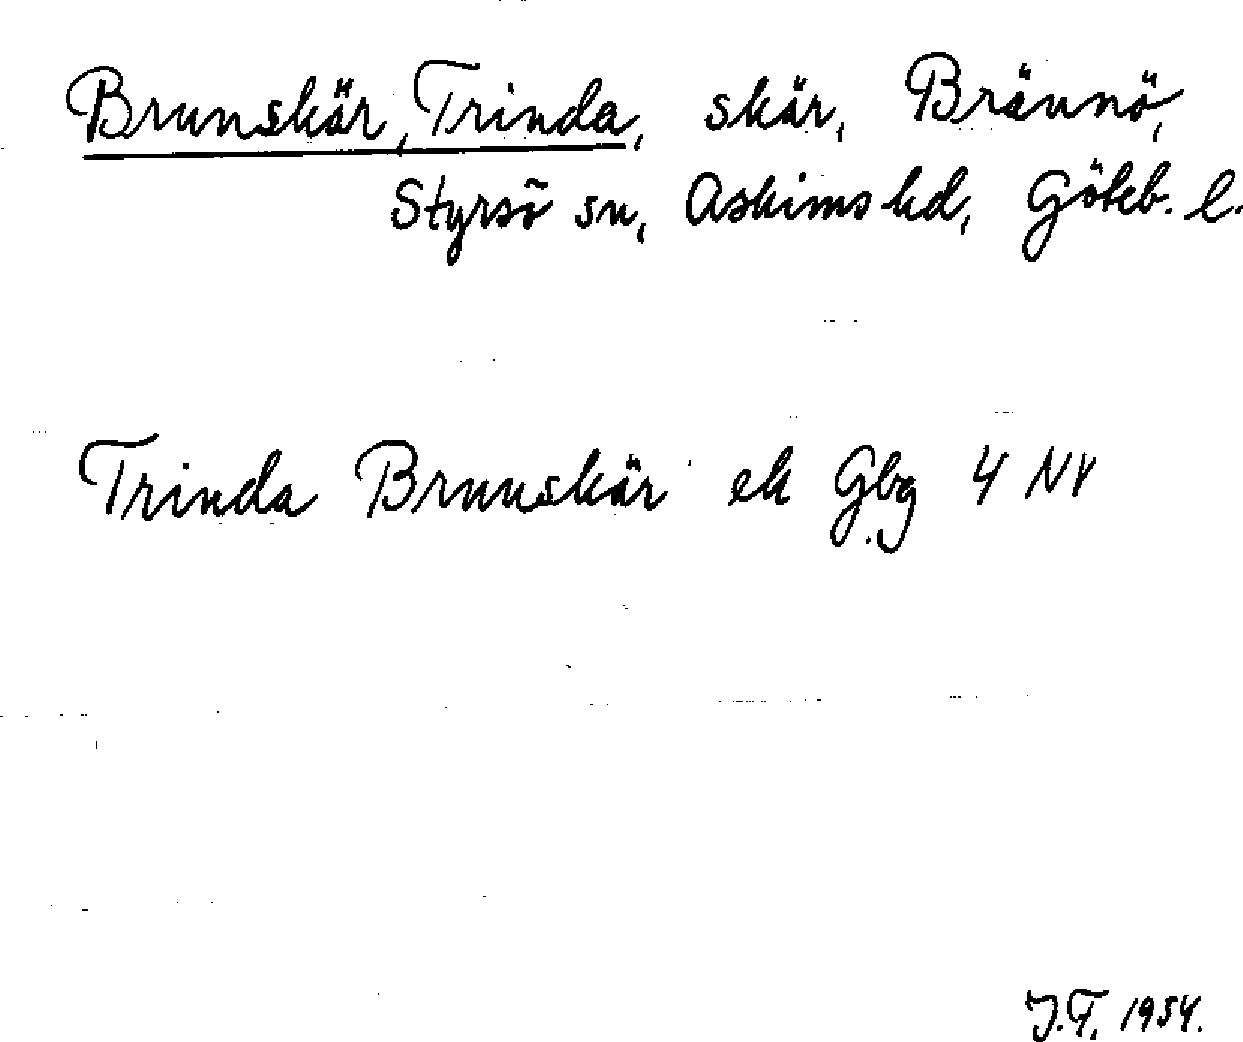 Brunskär, Trinda, skär, Brännö,
Styrsö sn, Askims hd, Göteb. l.
Trinda Brunskär ek Gbg 4 NV
J.F. 1954.